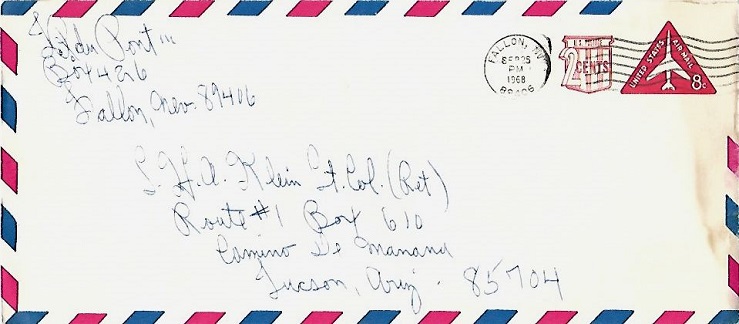 du Pont III
Box 426
Fallon, Nev. 89406
FALLON, NV.
SEP 25
PM
1968
89406
U.S. POSTAGE
2 CENTS
UNITED STATES AIR MAIL
8c
S. H. A. Klein Lt. Col. (Ret)
Route #1 Box 610
Camino De Manana
Tucson, Ariz. 85704